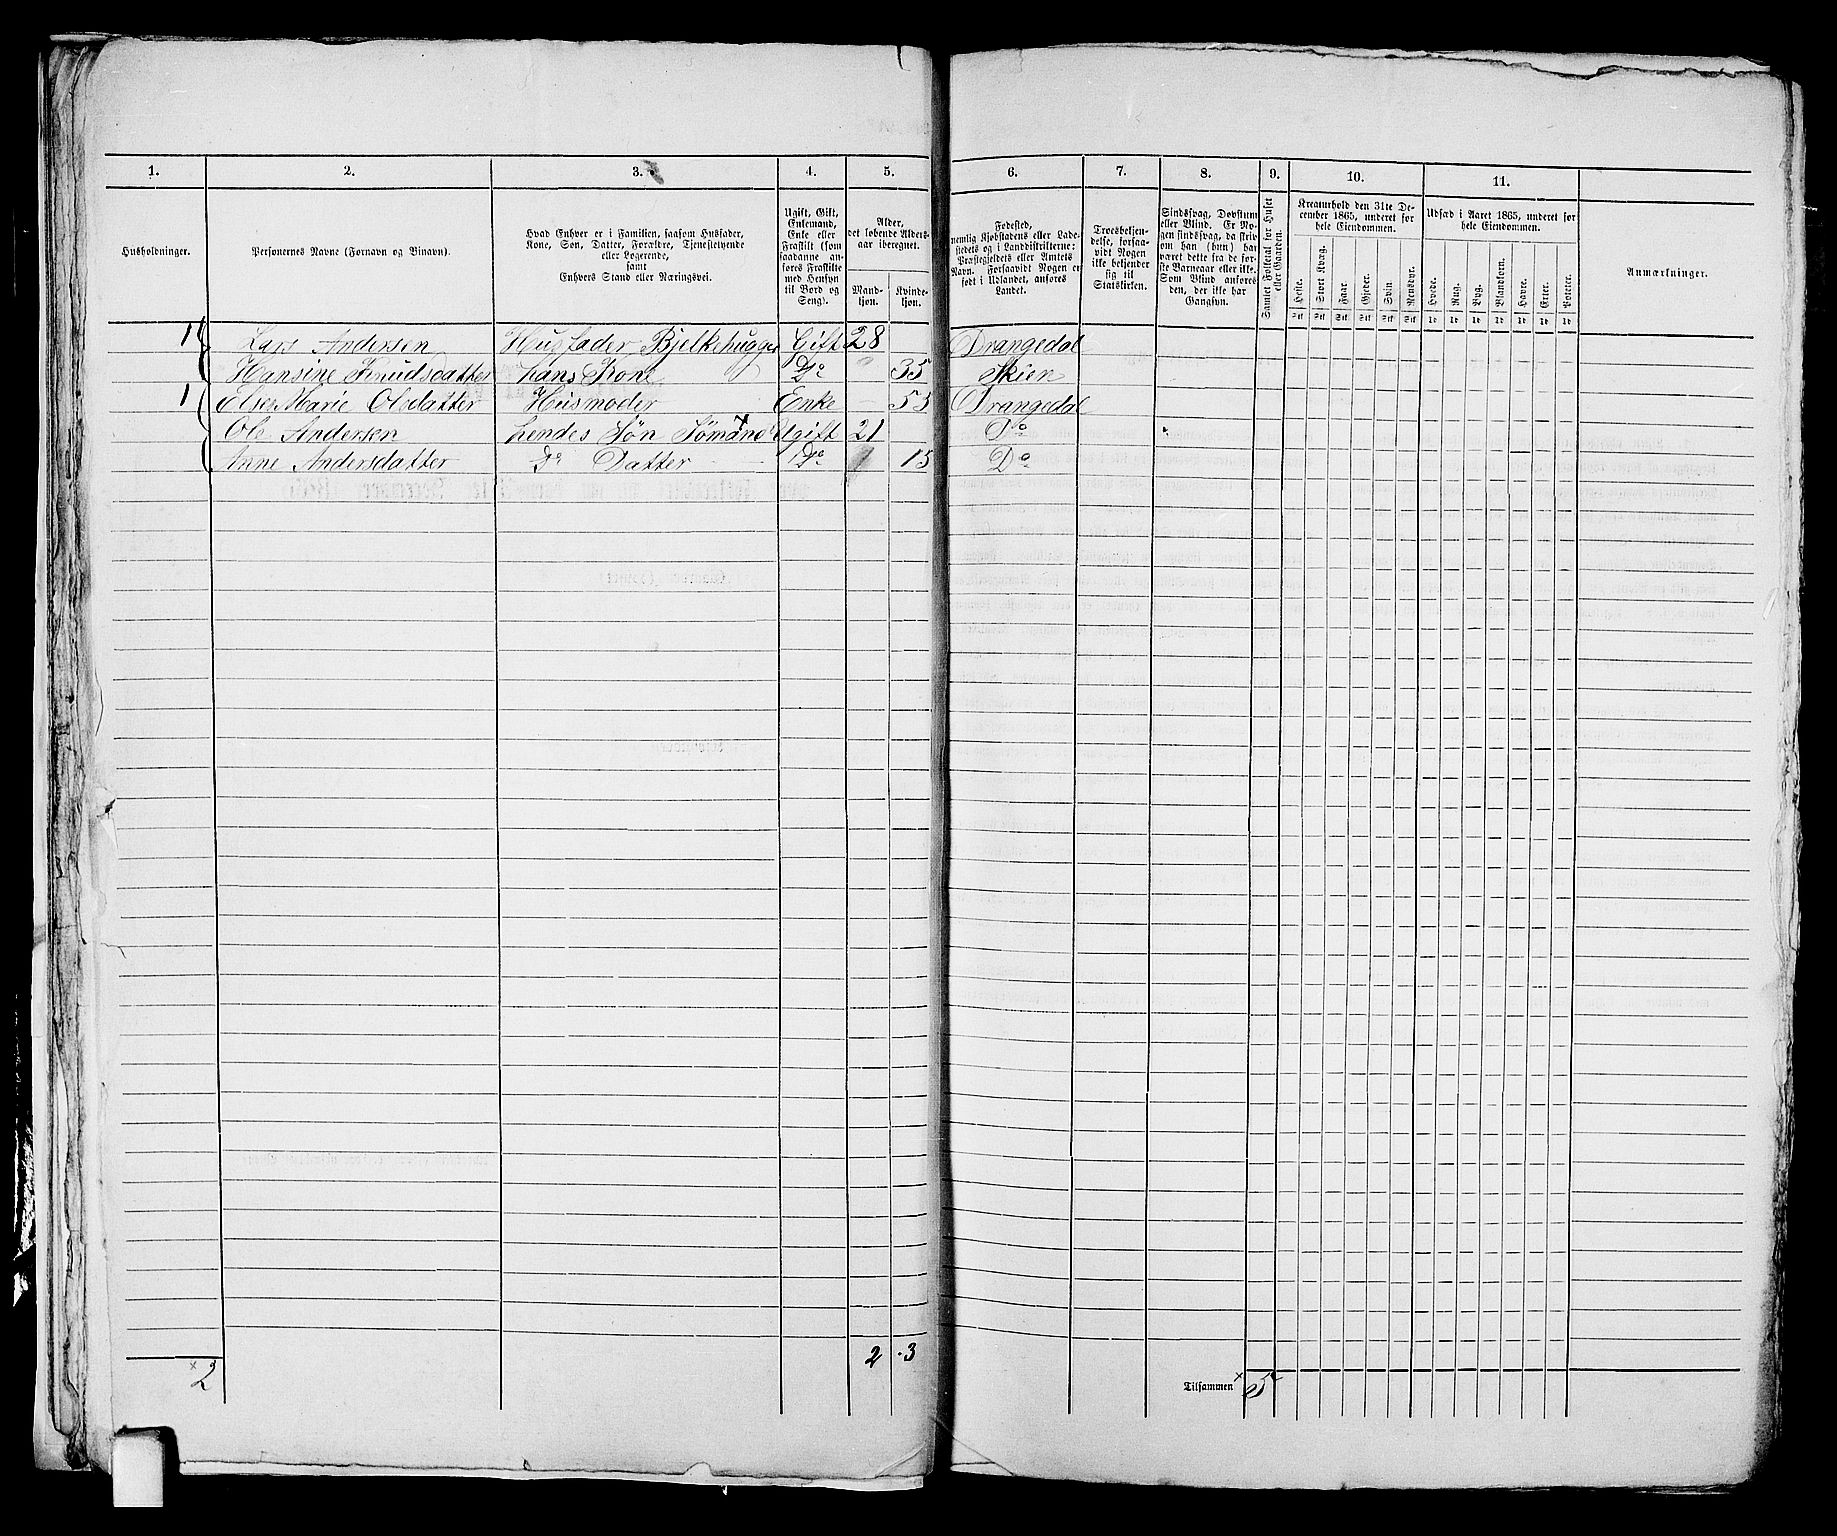 1. 2. 3. 4. 5. 6. 7. 8. 9. 10. 11.
Husholdninger.
Personernes Navne (Fornavn og Binavn).
Hvad Enhver er i Familien, saasom Husfader,
Kone, Søn, Datter, Forældre, Tjenestetyende
eller Logerende,
samt
Enhvers Stand eller Næringsvei.
Ugift, Gift,
Enkemand,
Enke eller
Fraskilt (som
saadanne an-
føres Fraskilte
med Hensyn
til Bord og
Seng).
Alder,
det løbende Alders-
aar iberegnet.
Mand-
kjøn.
Kvinde-
kjøn.
Fødested,
nemlig Kjøbstadens eller Lade-
stedets og i Landdistrikterne:
Præstegjeldets eller Amtets
Navn. Forsaavidt Nogen er
født i Udlandet, anføres
Landet.
Troesbekjen-
delse, forsaa-
vidt Nogen
ikke bekjender
sig til
Statskirken.
Sindssvag, Døvstum
eller Blind. Er No-
gen sindssvag, da skriv
om han (hun) har
været dette fra de før-
ste Barneaar eller ikke.
Som Blind anføres
den, der ikke har
Gangsyn.
Samlet Folketal for Huset
eller Gaarden.
Kreaturhold den 31te De-
cember 1865, underet for
hele Eiendommen.
Heste. Stort Kvæg. Faar. Gjeder. Svin Rensdyr.
Stk Stk Stk Stk Stk Stk
Udsæd i Aaret 1865, underet for
hele Eiendommen.
Hvede. Rug. Byg. Blandkorn. Havre. Erter. Poteter.
Td Td Td Td Td Td Td
Anmærkninger.
1 Lars Andersen Husfader Bjelkehugger Gift 28 Drangedal
Hansine Knudsdatter hans Kone Do 35 Skien
1 Else Marie Olsdatter Husmoder Enke - 55 Drangedal
Ole Andersen hendes Søn Sømand Ugift 21 Do
Anne Andersdatter Do Datter Do 15 Do
2 2 3
Tilsammen 5